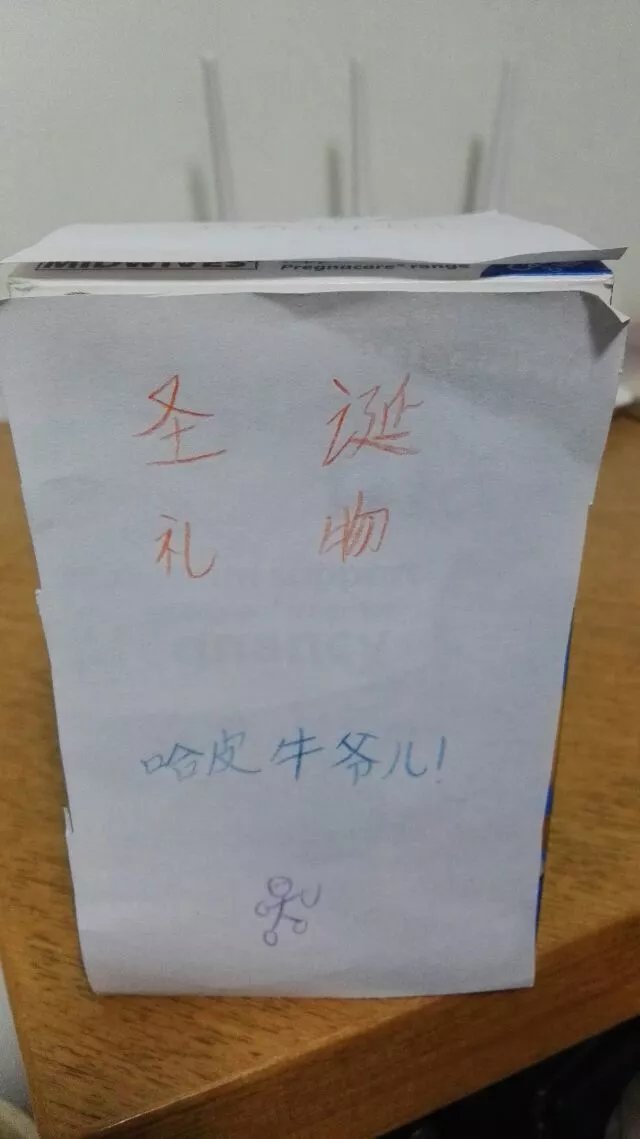 MIDWIVES
Pregnacare® range
圣诞
礼物
哈皮牛爷儿!